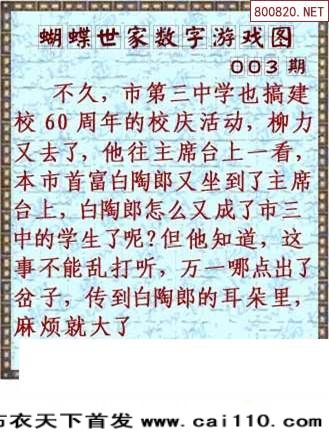 800820.NET
蝴蝶世家数字游戏图
003期
不久，市第三中学也搞建
校60周年的校庆活动，柳力
又去了，他往主席台上一看，
本市首富白陶郎又坐到了主席
台上，白陶郎怎么又成了市三
中的学生了呢？但他知道，这
事不能乱打听，万一哪点出了
岔子，传到白陶郎的耳朵里，
麻烦就大了
布衣天下首发 www.cai110.com